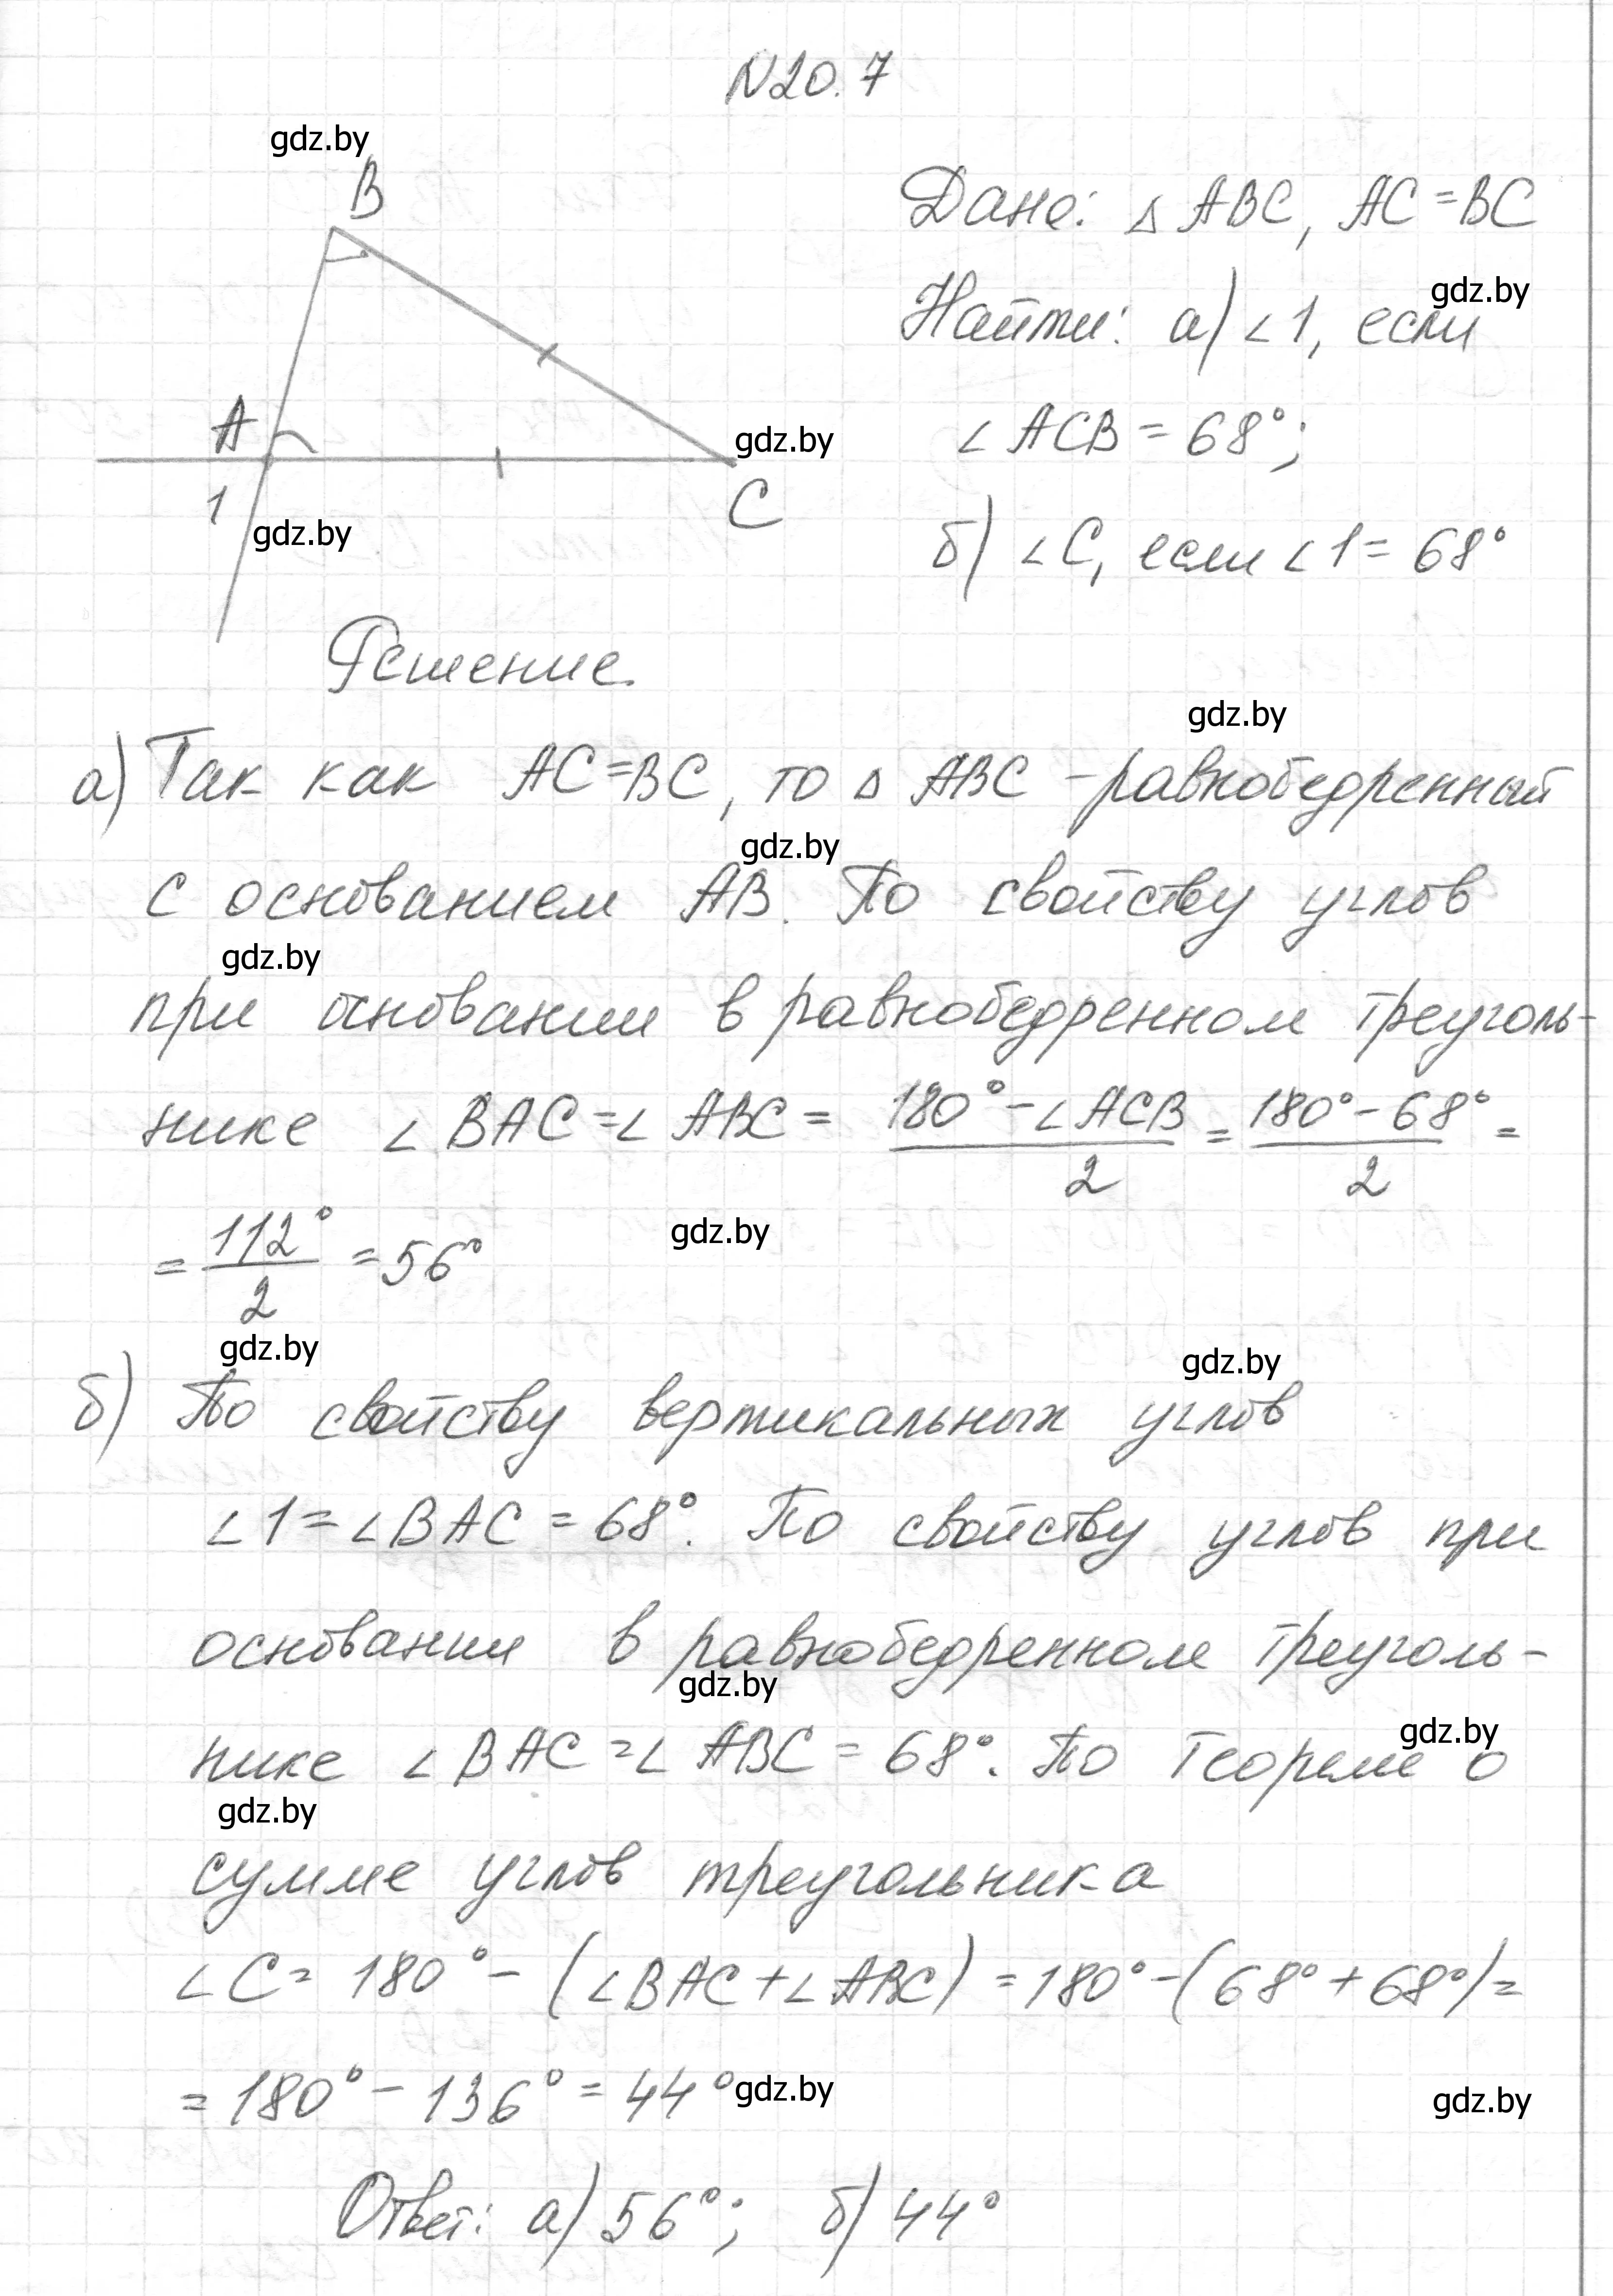 N20.7
gdz.by
B
Дано: △ ABC, AC = BC
Найти: а) ∠1, если
gdz.by
A
∠ ACB = 68°;
gdz.by
1
C
gdz.by
б) ∠C, если ∠1 = 68°
Решение.
gdz.by
а) Так как AC = BC, то △ ABC - равнобедренный
gdz.by
с основанием AB. По свойству углов
gdz.by
при основании в равнобедренном треуголь-
нике ∠ BAC = ∠ ABC = (180° - ∠ ACB)/2 = (180° - 68°)/2 =
= 112°/2 = 56°
gdz.by
gdz.by
gdz.by
б) По свойству вертикальных углов
∠1 = ∠BAC = 68°. По свойству углов при
основании в равнобедренном треуголь-
gdz.by
нике ∠ BAC = ∠ ABC = 68°. По теореме о
gdz.by
gdz.by
сумме углов треугольника
∠C = 180° - (∠BAC + ∠ABC) = 180° - (68° + 68°) =
= 180° - 136° = 44°
gdz.by
gdz.by
Ответ: а) 56°; б) 44°